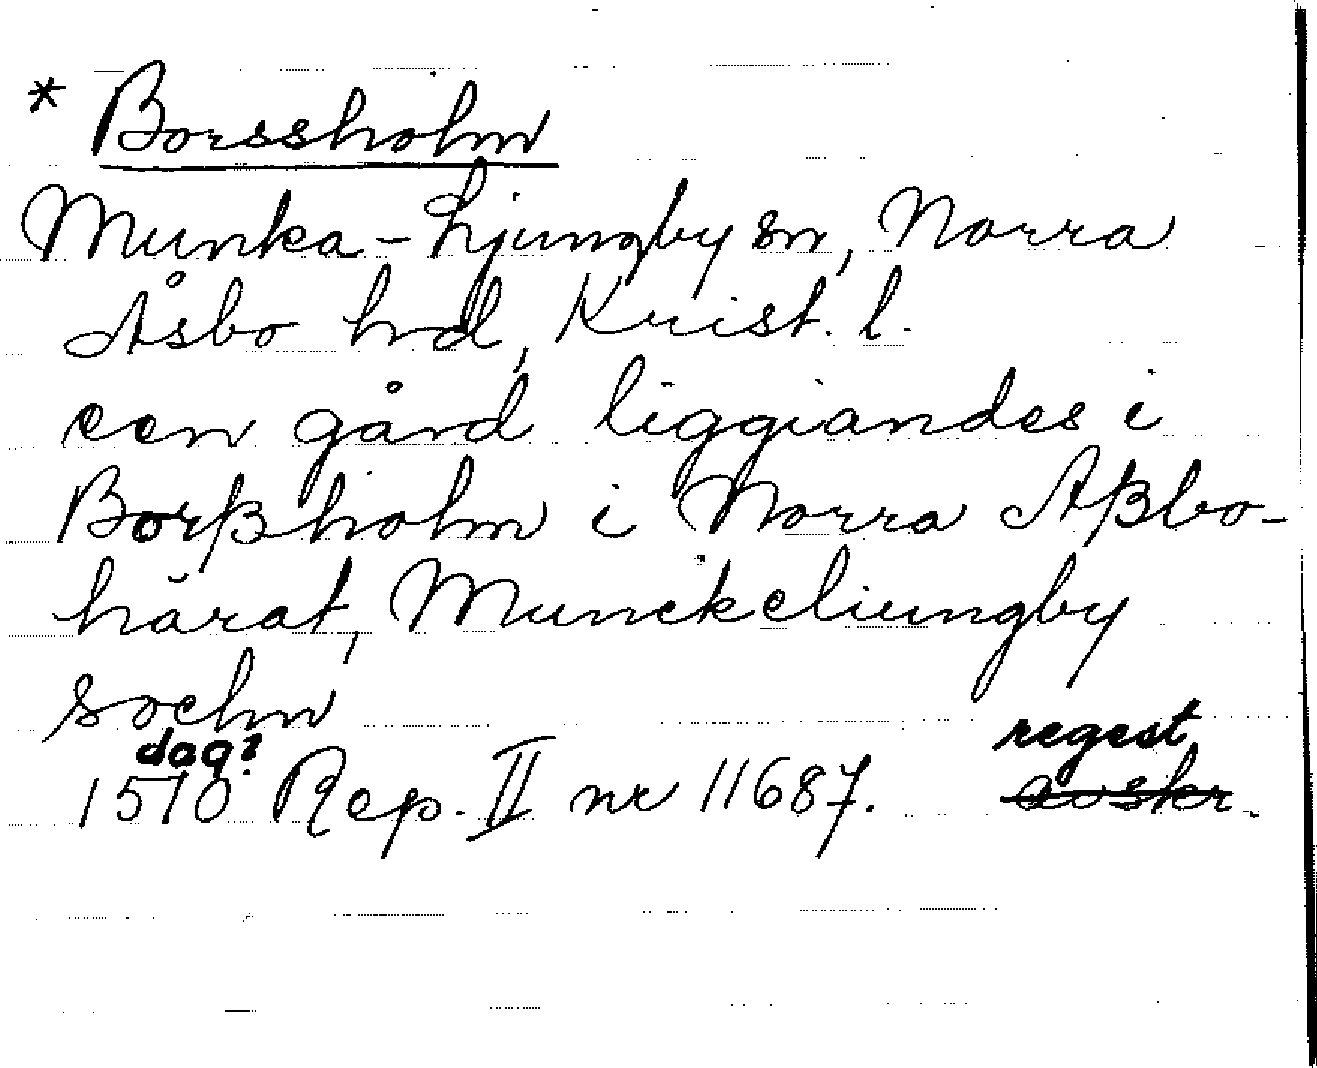 * Borssholm
Munka-Ljungby sn, Norra
Åsbo hd, Krist. l.
een gård liggiandes i
Borßholm i Norra Aßbo-
härat, Munckeliungby
sochn
dag?
regest
1510 Rep. II nr 11687. avskr.